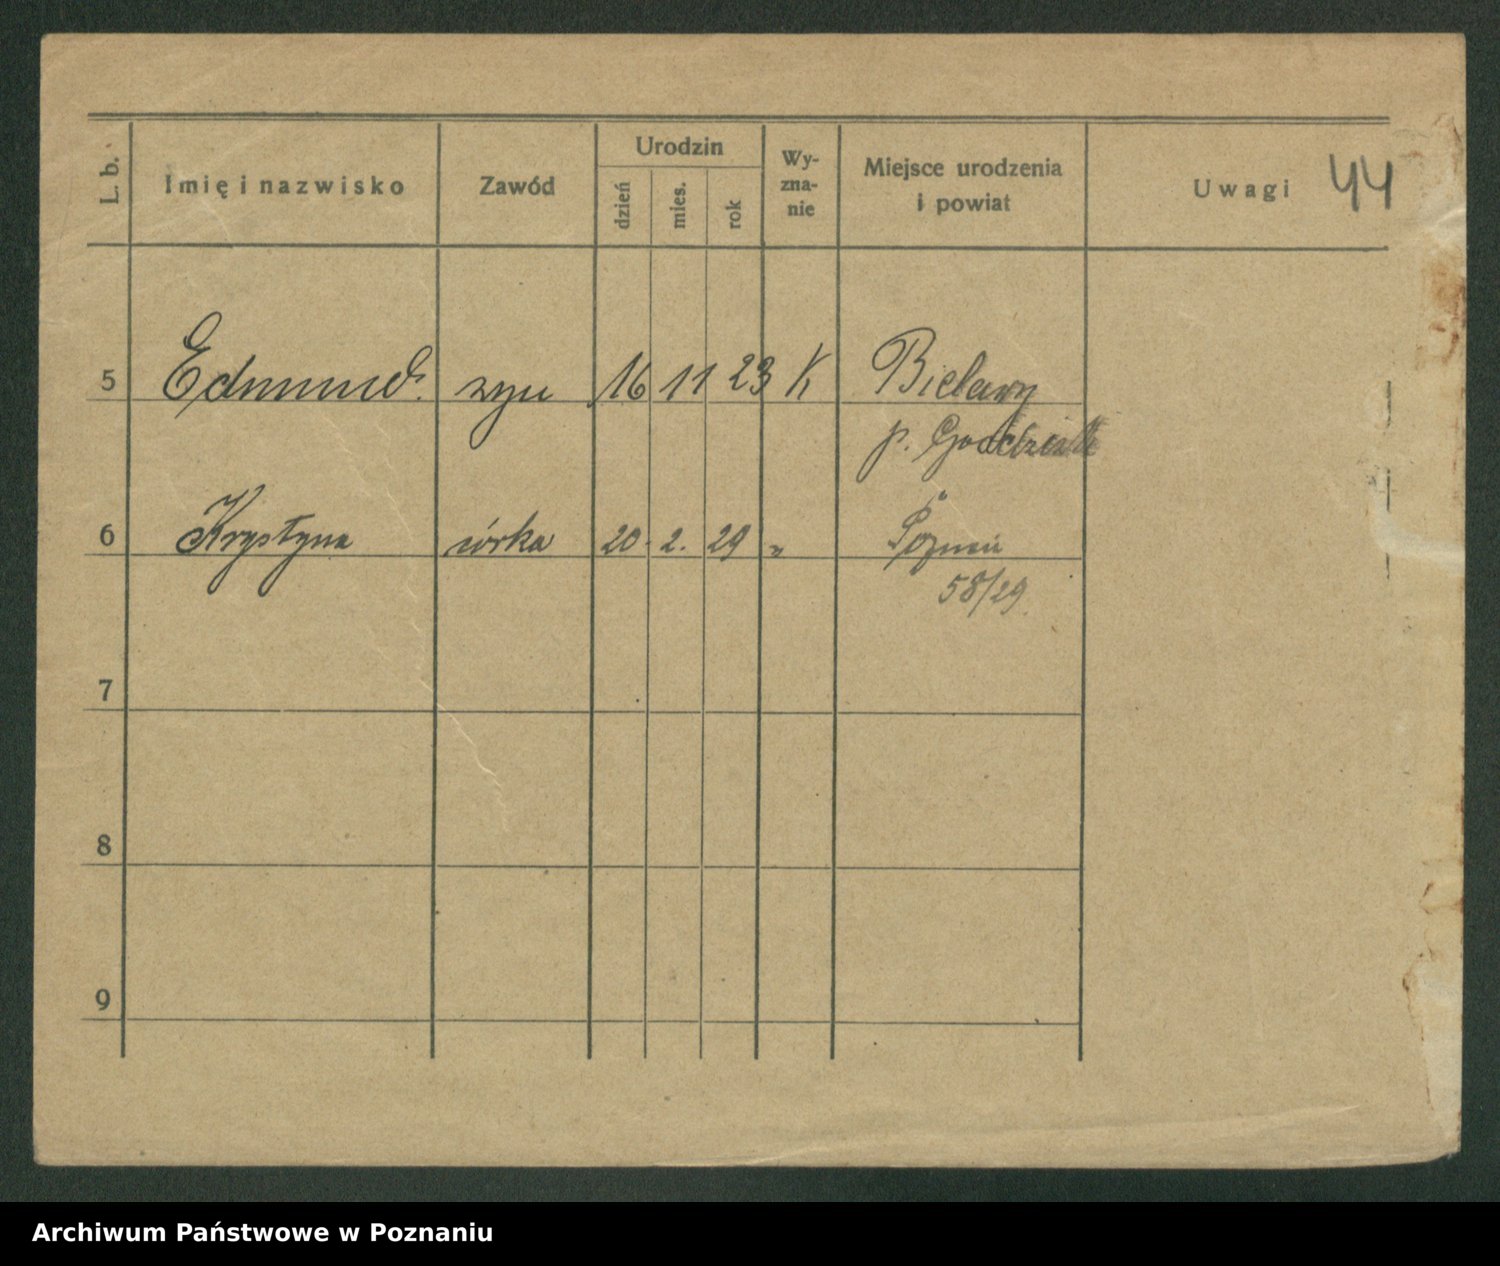 44
L. b. Imię i nazwisko Zawód Urodzin Wy-zna-nie Miejsce urodzenia i powiat Uwagi
dzień mies. rok
5 Edmund. syn 16 11 23 K Bielawy
p.
6 Krystyna córka 20. 2. 29 " Poznań
58/29
7
8
9
Archiwum Państwowe w Poznaniu